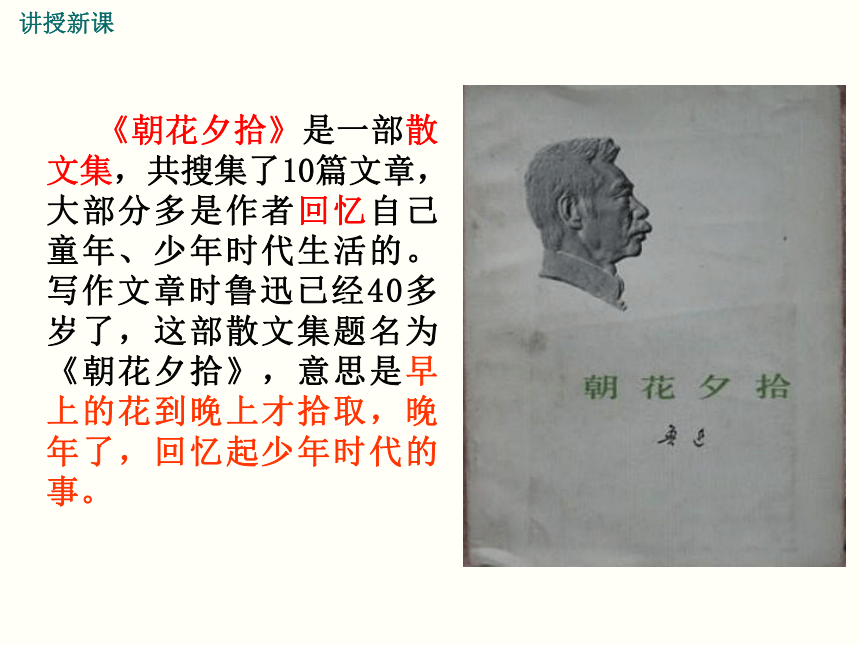 讲授新课
《朝花夕拾》是一部散
文集，共搜集了10篇文章，
大部分多是作者回忆自己
童年、少年时代生活的。
写作文章时鲁迅已经40多
岁了，这部散文集题名为
《朝花夕拾》，意思是早
上的花到晚上才拾取，晚
年了，回忆起少年时代的
事。
朝花夕拾
鲁迅